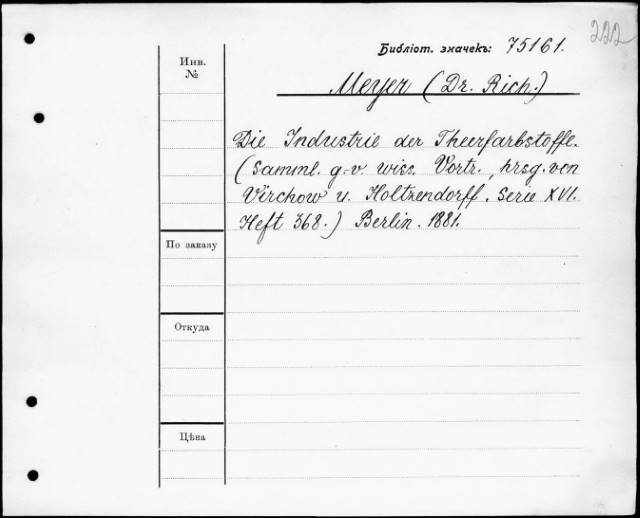 222
Библіот. значекъ: 75161.
Инв.
№
Meyer (Dr. Rich.)
Die Industrie der Theerfarbstoffe.
(Samml. g.-v. wiss. Vortr., hrsg. von
Virchow u. Holtzendorff. Serie XVI.
Heft 368.) Berlin. 1881.
По заказу
Откуда
Цѣна